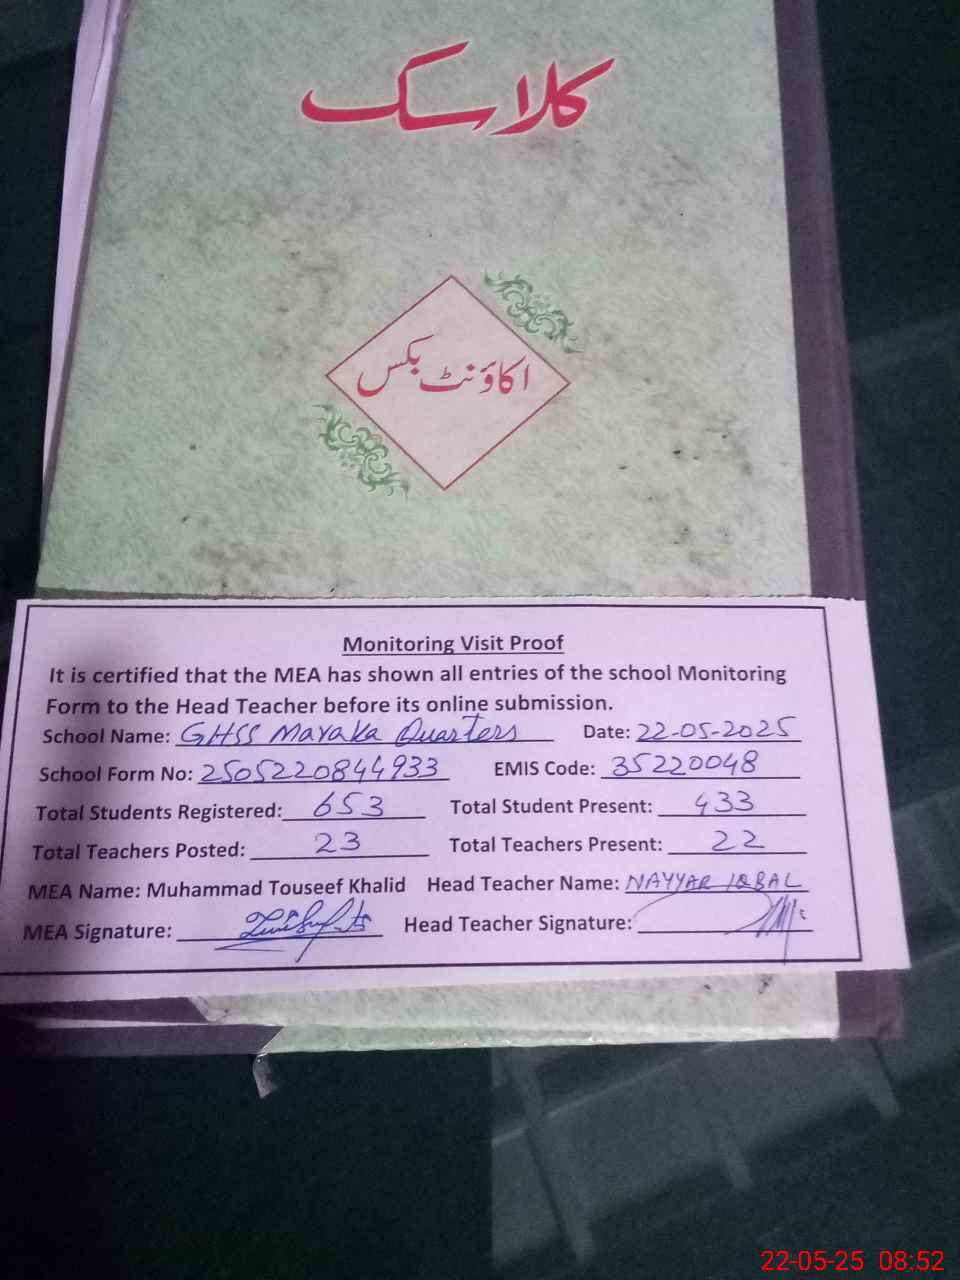 کلاسک
اکاؤنٹ بکس
Monitoring Visit Proof
It is certified that the MEA has shown all entries of the school Monitoring
Form to the Head Teacher before its online submission.
School Name: GHSS Maraka Quarters Date: 22-05-2025
School Form No: 2505220844933 EMIS Code: 35220048
Total Students Registered: 653 Total Student Present: 433
Total Teachers Posted: 23 Total Teachers Present: 22
MEA Name: Muhammad Touseef Khalid Head Teacher Name: NAYYAR IQBAL
MEA Signature: Head Teacher Signature:
22-05-25 08:52